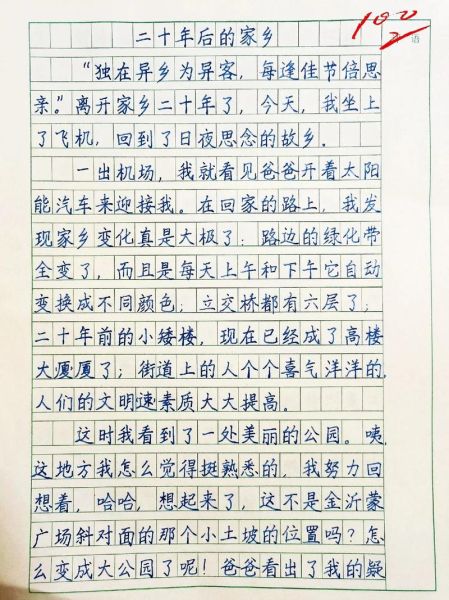 二十年后的家乡
100
语
“独在异乡为异客，每逢佳节倍思
亲”。离开家乡二十年了，今天，我坐上
了飞机，回到了日夜思念的故乡．
一出机场，我就看见爸爸开着太阳
能汽车来迎接我。在回家的路上，我发
现家乡变化真是大极了：路边的绿化带
全变了，而且是每天上午和下午它自动
变换成不同颜色；立交桥都有六层了；
二十年前的小矮楼，现在已经成了高楼
大厦厦了；街道上的人个个喜气洋洋的，
人们的文明速素质大大提高。
这时我看到了一处美丽的公园。咦，
这地方我怎么觉得挺熟悉的，我努力回
想着，哈哈，想起来了，这不是金沂蒙
广场斜对面的那个小土坡的位置吗？怎
么变成大公园了呢！爸爸看出了我的疑